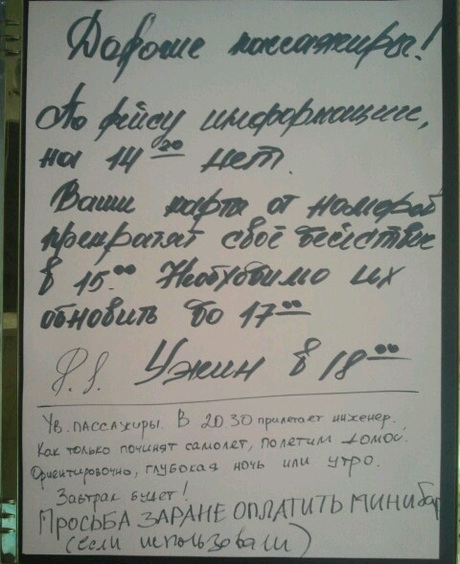 Дорогие пассажиры!
По рейсу информации,
на 14 20 нет.
Ваши карты от номеров
прекратят своё действие
в 15.00 Необходимо их
обновить до 17 00
P.S. Ужин в 18 00
Ув. пассажиры. В 20.30 прилетает инженер.
Как только починят самолет, полетим домой.
Ориентировочно, глубокая ночь или утро.
Завтрак будет!
ПРОСЬБА ЗАРАНЕ ОПЛАТИТЬ МИНИбар
(если использовали)